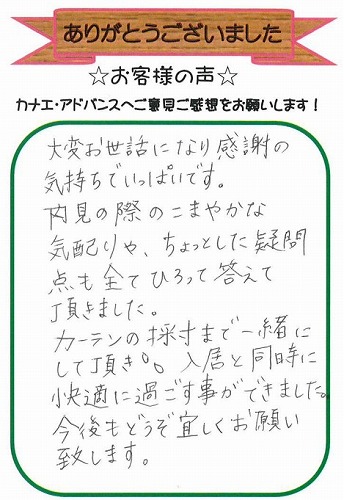 ありがとうございました
☆お客様の声☆
カナエ・アドバンスへご意見ご感想をお願いします!
大変お世話になり感謝の
気持ちでいっぱいです。
内見の際のこまやかな
気配りや、ちょっとした疑問
点も全てひろって答えて
頂きました。
カーテンの採寸まで一緒に
して頂き。。入居と同時に
快適に過ごす事ができました。
今後もどうぞ宜しくお願い
致します。